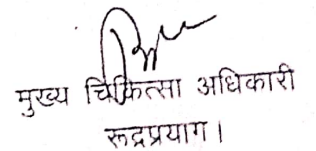 मुख्य चिकित्सा अधिकारी
रूद्रप्रयाग।